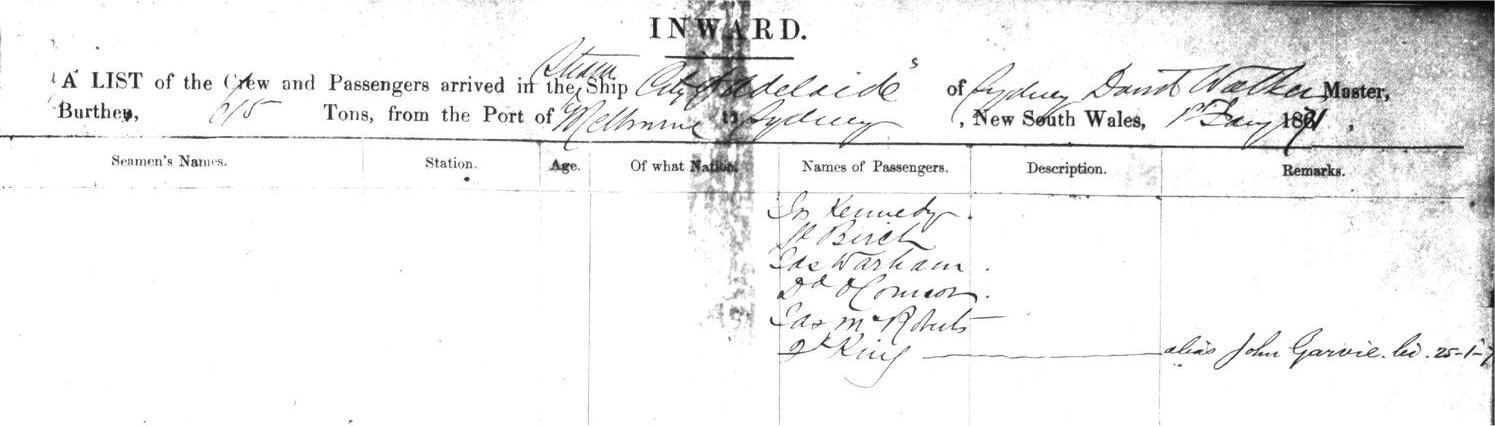 INWARD.
Steam
A LIST of the Crew and Passengers arrived in the Ship City of Adelaide of Sydney David Walker Master,
Burthen, 615 Tons, from the Port of Melbourne to Sydney, New South Wales, 1st Jany 1871,
Seamen's Names. Station. Age. Of what Nation. Names of Passengers. Description. Remarks.
Kennedy.
Birch
Jas Warham.
Dd O'Connor.
Jas McRoberts
King alias John Garvie. 25-1-7